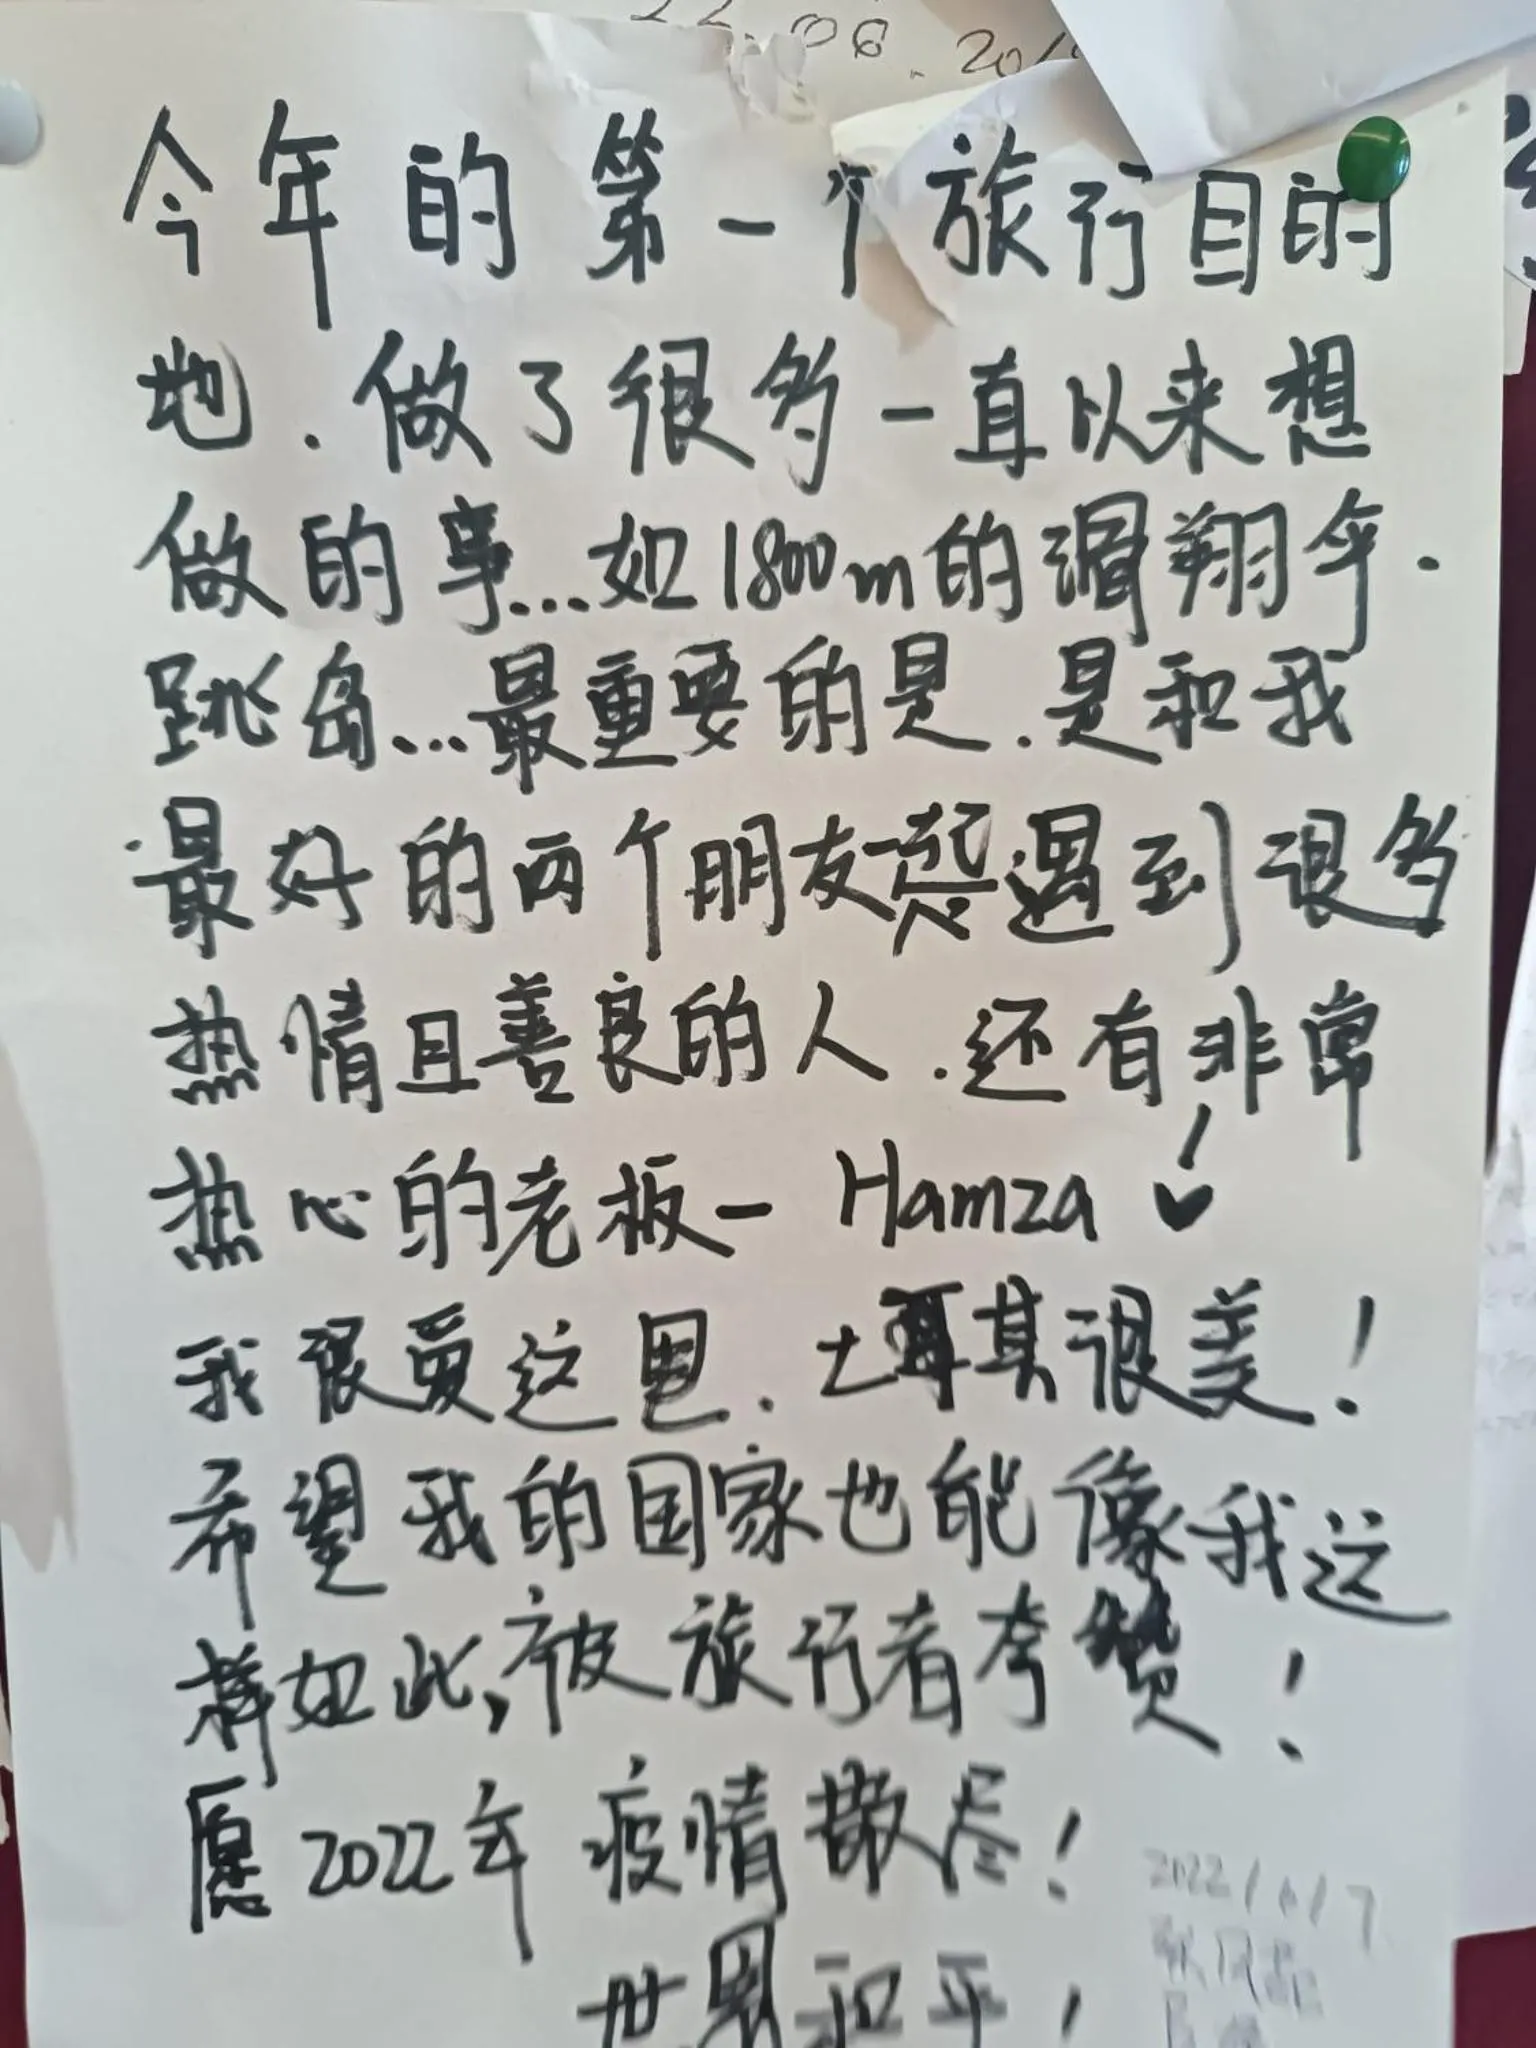 22.06.20
今年的第一个旅行目的
地.做了很多一直以来想
做的事...如1800m的滑翔伞.
跳岛...最重要的是.是和我
最好的两个朋友一起遇到很多
热情且善良的人.还有非常
热心的老板- Hamza ♥!
我很爱这里.土耳其很美!
希望我的国家也能像我这
样如此,被旅行者夸赞!
愿2022年疫情散尽!
世界和平!
2022/